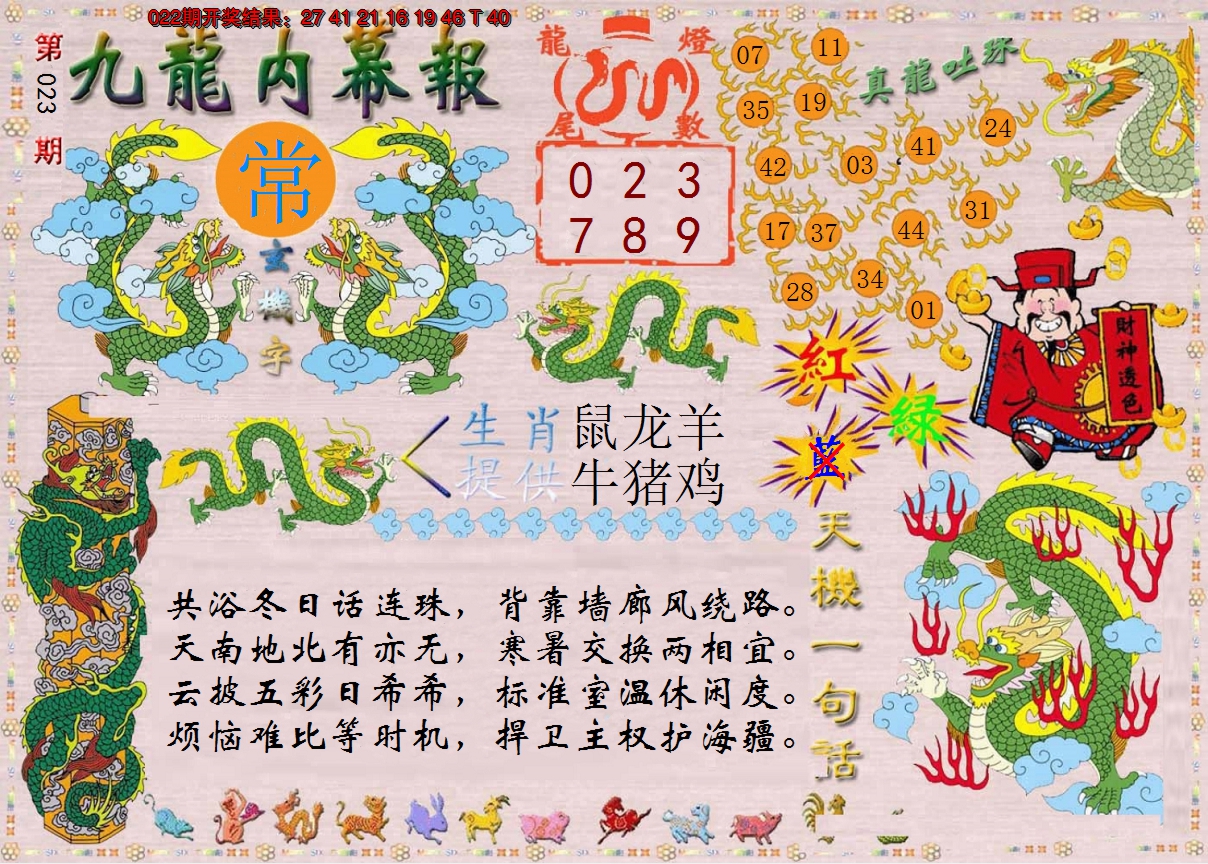 022期开奖结果：27 41 21 16 19 46 T 40
第023期
九龍内幕報
常
玄機字
龍燈
尾數
0 2 3
7 8 9
真龍吐珠
07 11
35 19
42 03 41 24
17 37 44 31
28 34 01
財神透色
紅
綠
藍
生肖提供
鼠龙羊
牛猪鸡
天機一句話
共浴冬日话连珠，背靠墙廊风绕路。
天南地北有亦无，寒暑交换两相宜。
云披五彩日希希，标准室温休闲度。
烦恼难比等时机，捍卫主权护海疆。